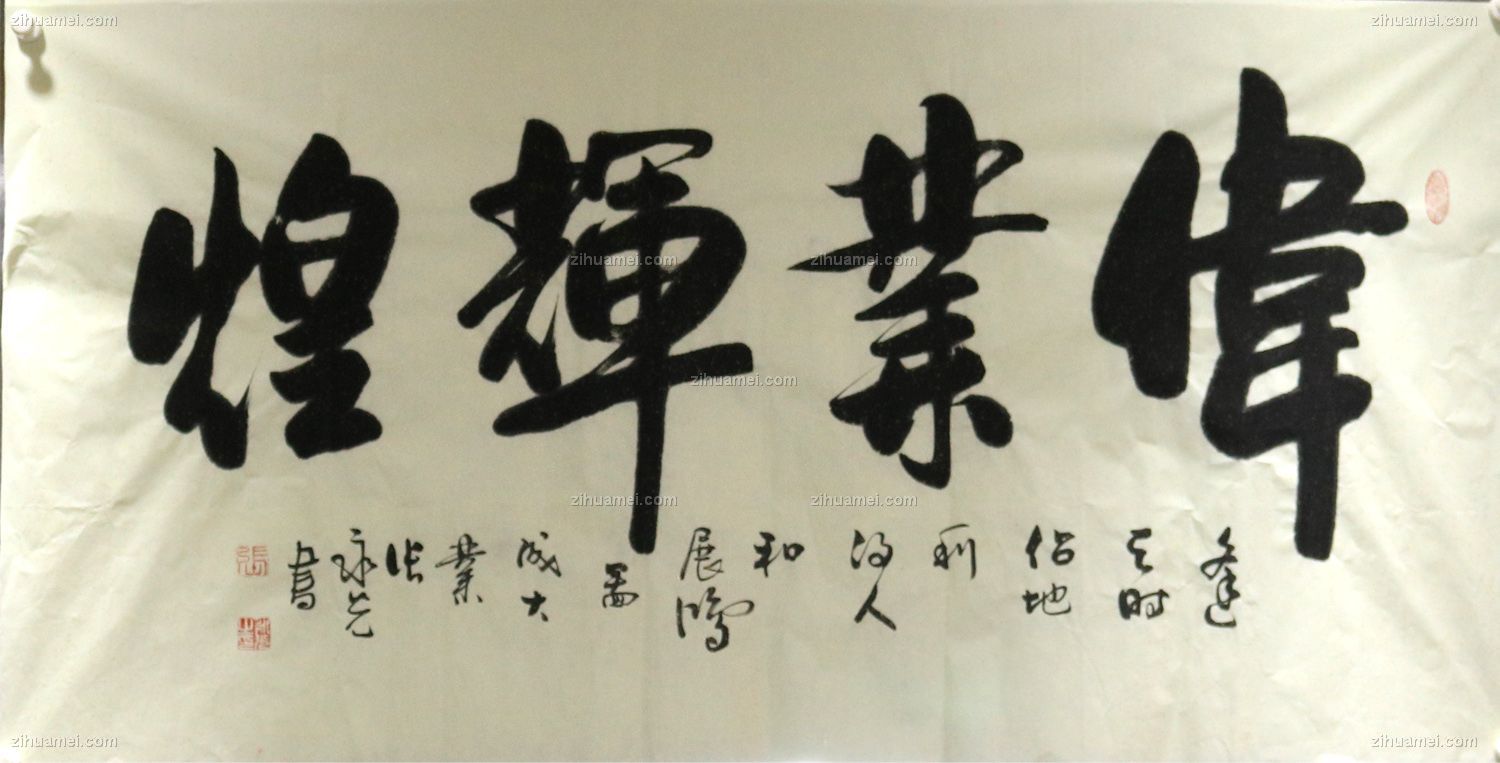 偉業輝煌
逢
天时
佔地
利
得人
和
展鴻
圖
成大
業
张
永芝
書
張
zihuamei.com
zihuamei.com
zihuamei.com
zihuamei.com
zihuamei.com
zihuamei.com
zihuamei.com
zihuamei.com
zihuamei.com